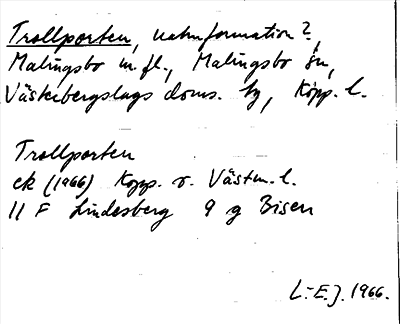 Trollporten, naturformation?,
Malingsbo m.fl., Malingsbo sn,
Västerbergslags doms. hg, Kopp. l.
Trollporten
ek (1966) Kopp. o. Västm. l.
11 F Lindesberg 9 g Bisen
L.-E.J. 1966.